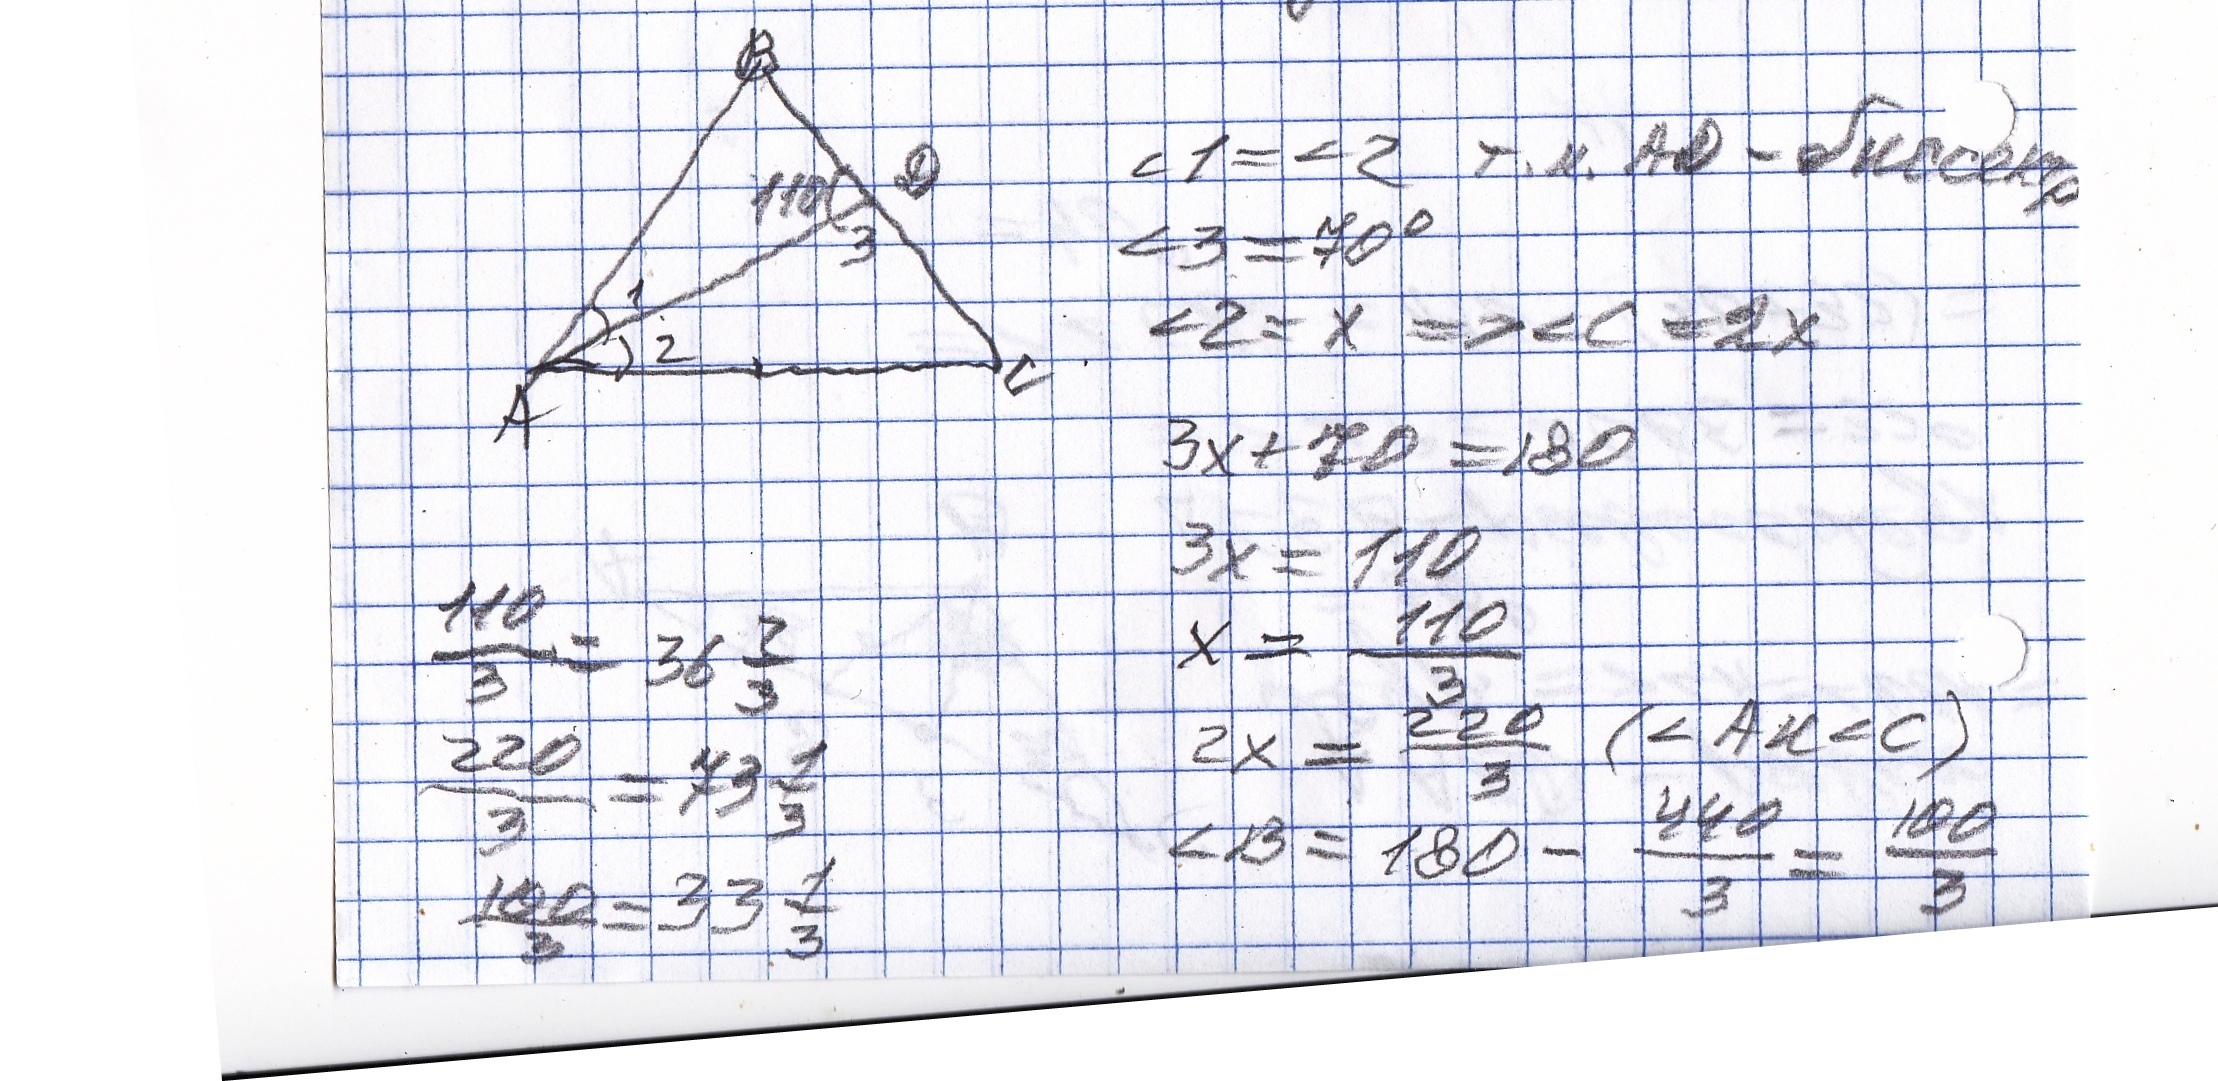 B
D
110
3
1
2
A
C
<1=<2 т.к. AD - биссектр
<3=70°
<2=x => <C=2x
3x+70=180
3x=110
x = 110/3
2x = 220/3 (<A и <C)
<B = 180 - 440/3 = 100/3
110/3 = 36 2/3
220/3 = 73 1/3
100/3 = 33 1/3